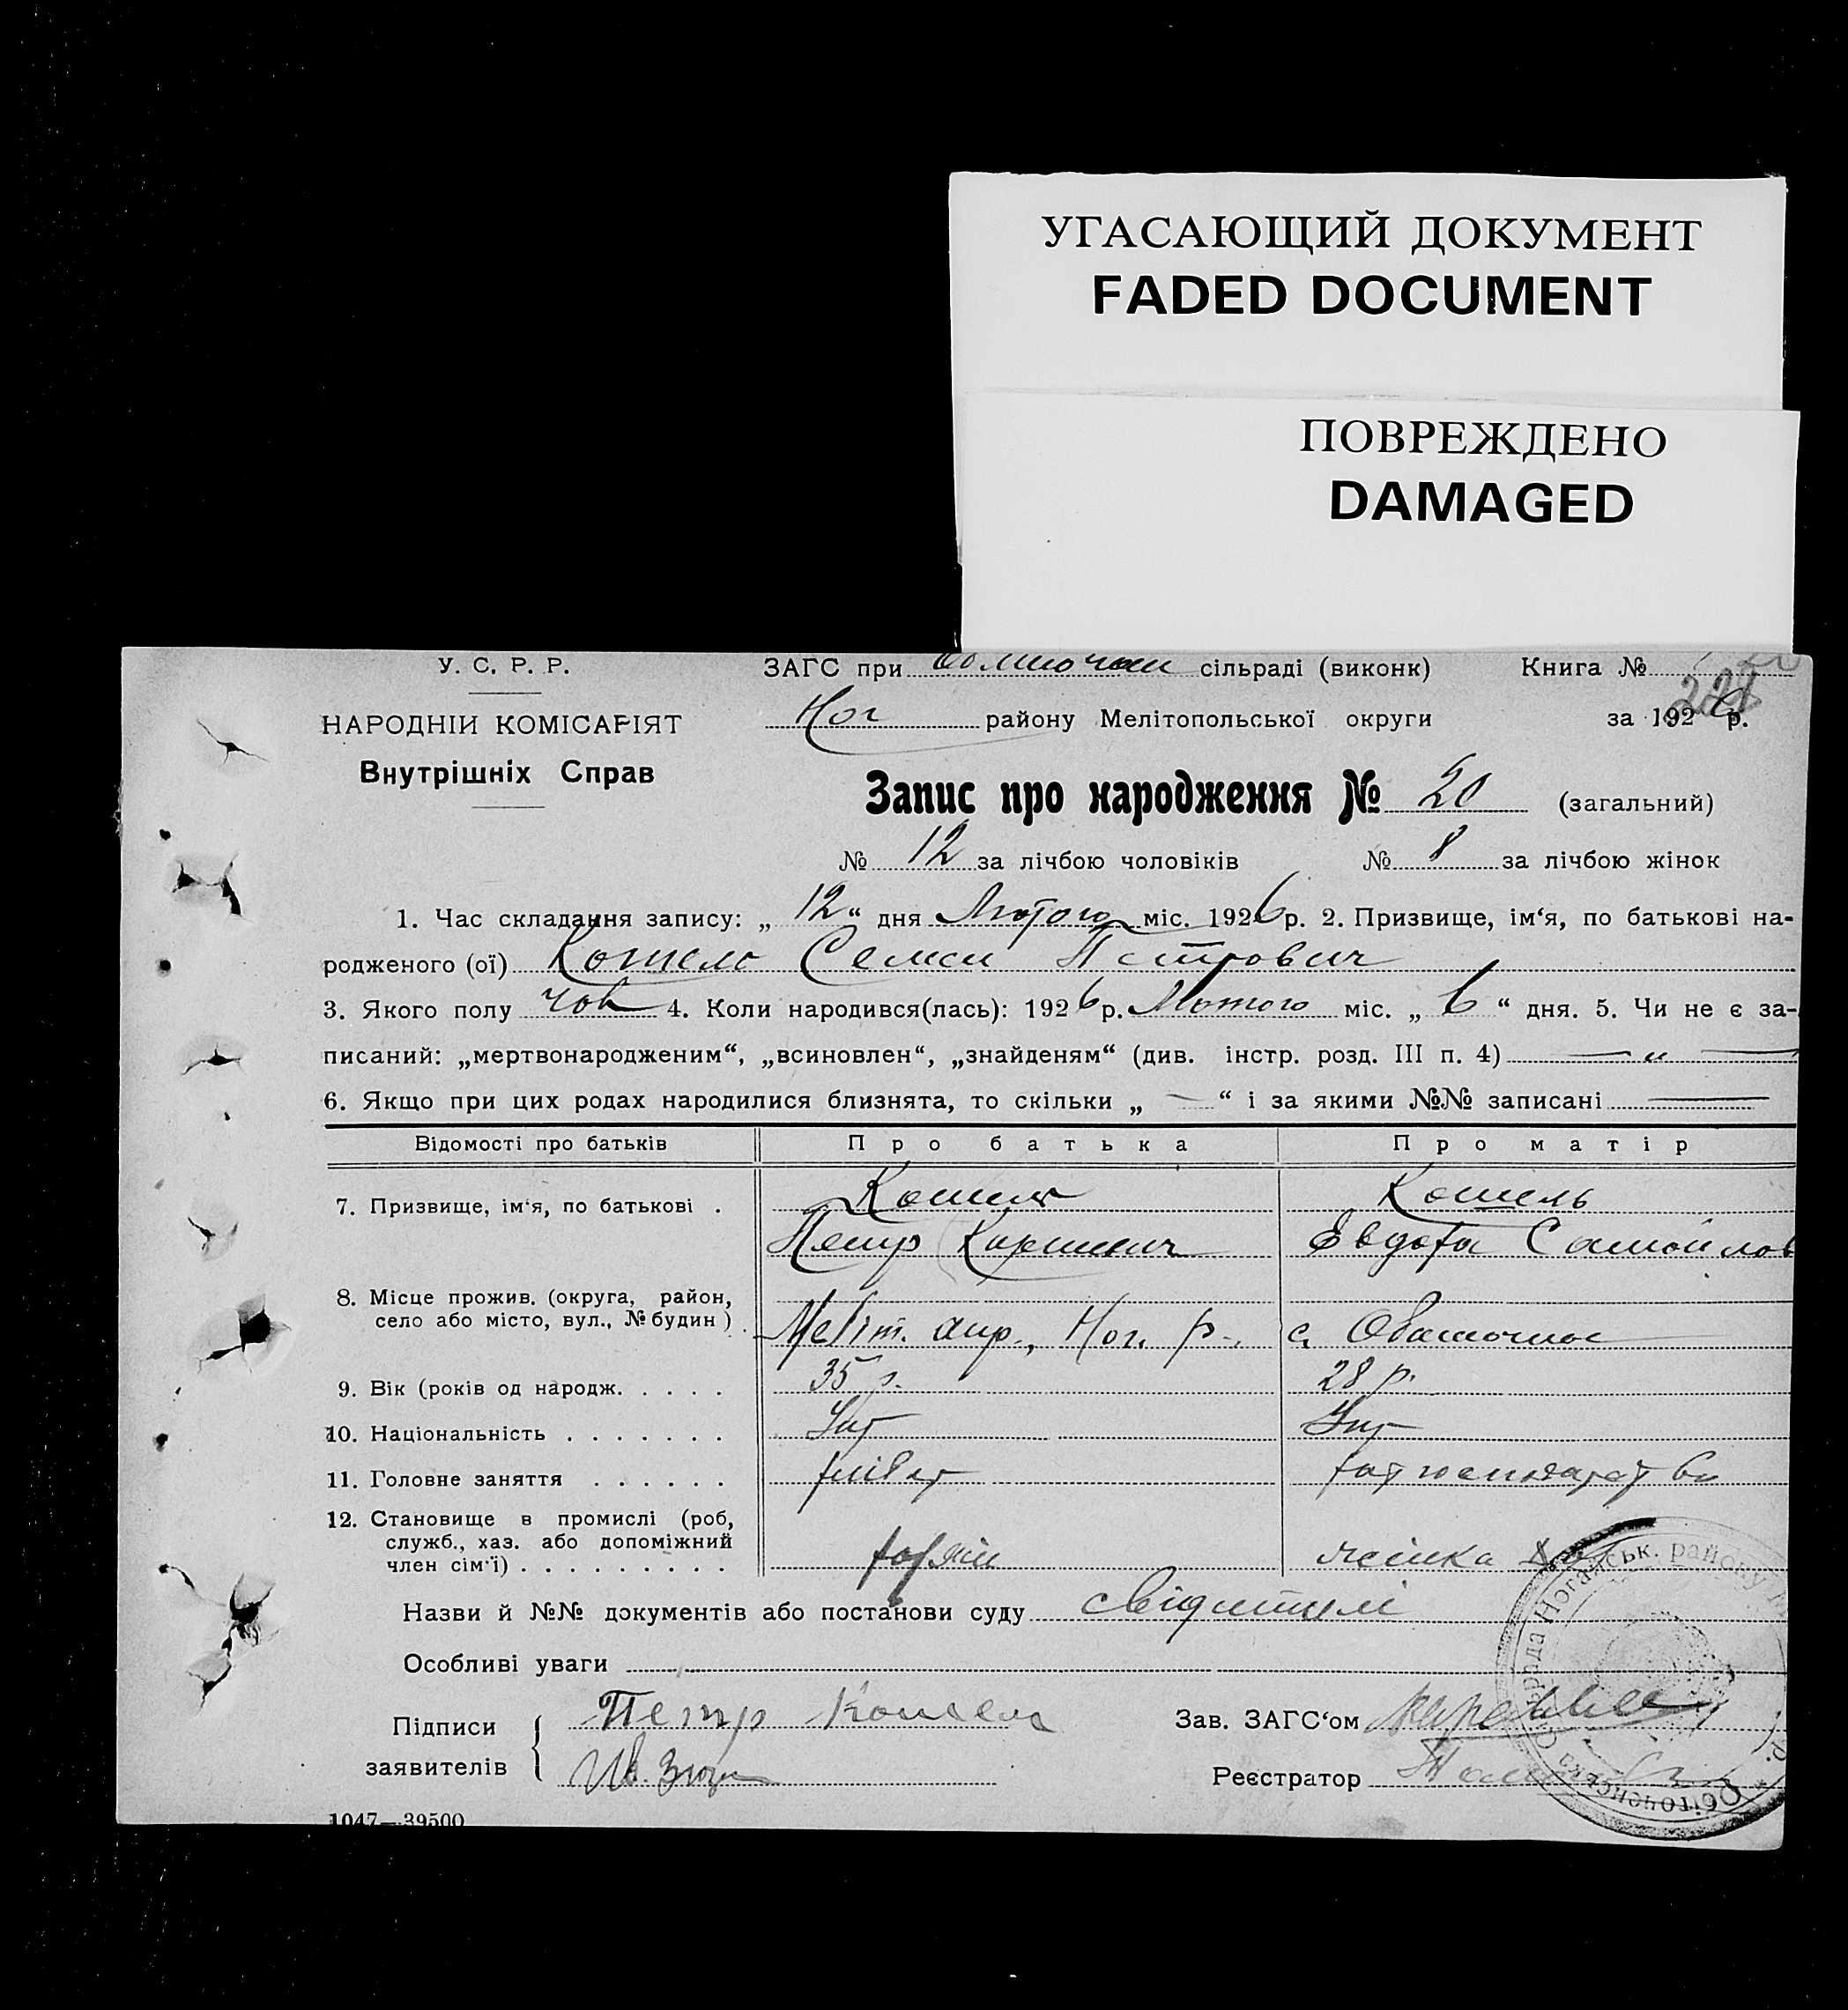 УГАСАЮЩИЙ ДОКУМЕНТ
FADED DOCUMENT
ПОВРЕЖДЕНО
DAMAGED
У. С. Р. Р.
ЗАГС при сільраді (виконк) Книга №
228
НАРОДНІЙ КОМІСАРІЯТ
Ног району Мелітопольської округи за 1926 р.
Внутрішніх Справ
Запис про народження № 20 (загальний)
№ 12 за лічбою чоловіків № 8 за лічбою жінок
1. Час складання запису: „ 12 “ дня Лютого міс. 1926 р. 2. Призвище, ім‘я, по батькові на-
родженого (ої) Кошель Семен Петрович
3. Якого полу чов 4. Коли народився(лась): 1926 р. Лютого міс. „ 6 “ дня. 5. Чи не є за-
писаний: „мертвонародженим“, „всиновлен“, „знайденям“ (див. інстр. розд. III п. 4) — „ —
6. Якщо при цих родах народилися близнята, то скільки „ — “ і за якими №№ записані —
Відомості про батьків Про батька Про матір
7. Призвище, ім‘я, по батькові . Кошель Кошель
Петр Евдокия Самойлов
8. Місце прожив. (округа, район,
село або місто, вул., № будин) . Меліт. окр., Ног. р., с.
9. Вік (років од народж. . . . . 35 р. 28 р.
10. Національність . . . . . . . Укр Укр
11. Головне заняття . . . . . .
12. Становище в промислі (роб,
служб., хаз. або допоміжний
член сім‘ї) . . . . . . . . . хазяїн
Назви й №№ документів або постанови суду свідителі
Особливі уваги
Підписи
заявителів
Петр Кошель
Ив.
Зав. ЗАГС‘ом
Реєстратор
Ногайськ. району
1047—39500